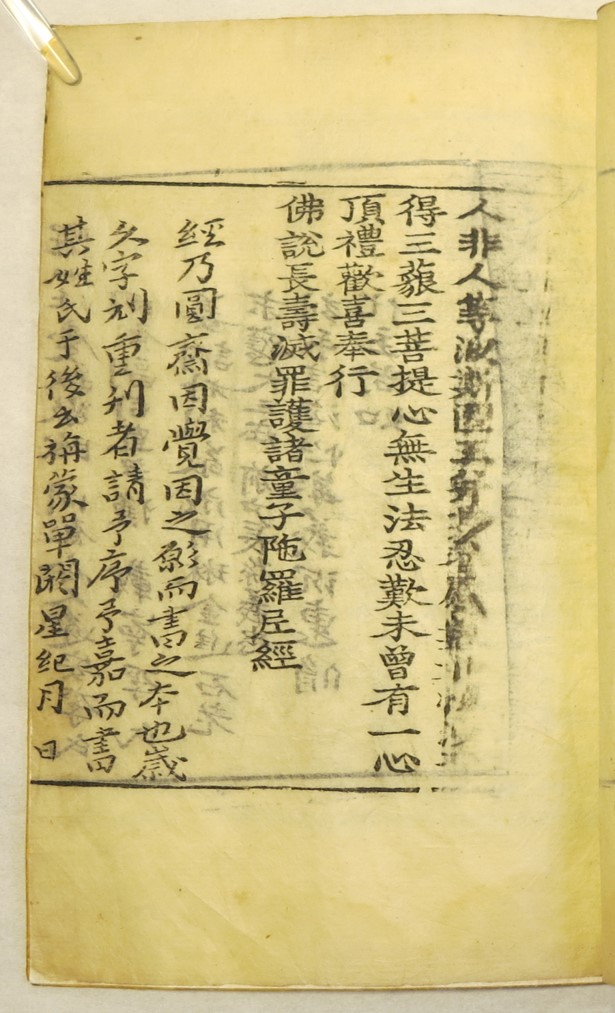 人非人等波斯匿王
得三藐三菩提心無生法忍歎未曾有一心
頂禮歡喜奉行
佛說長壽滅罪護諸童子陁羅尼經
經乃圓齋因覺因之願而書之本也歲
久字刓重刋者請予序予嘉而書
其姓氏于後云旃蒙單閼星紀月 日